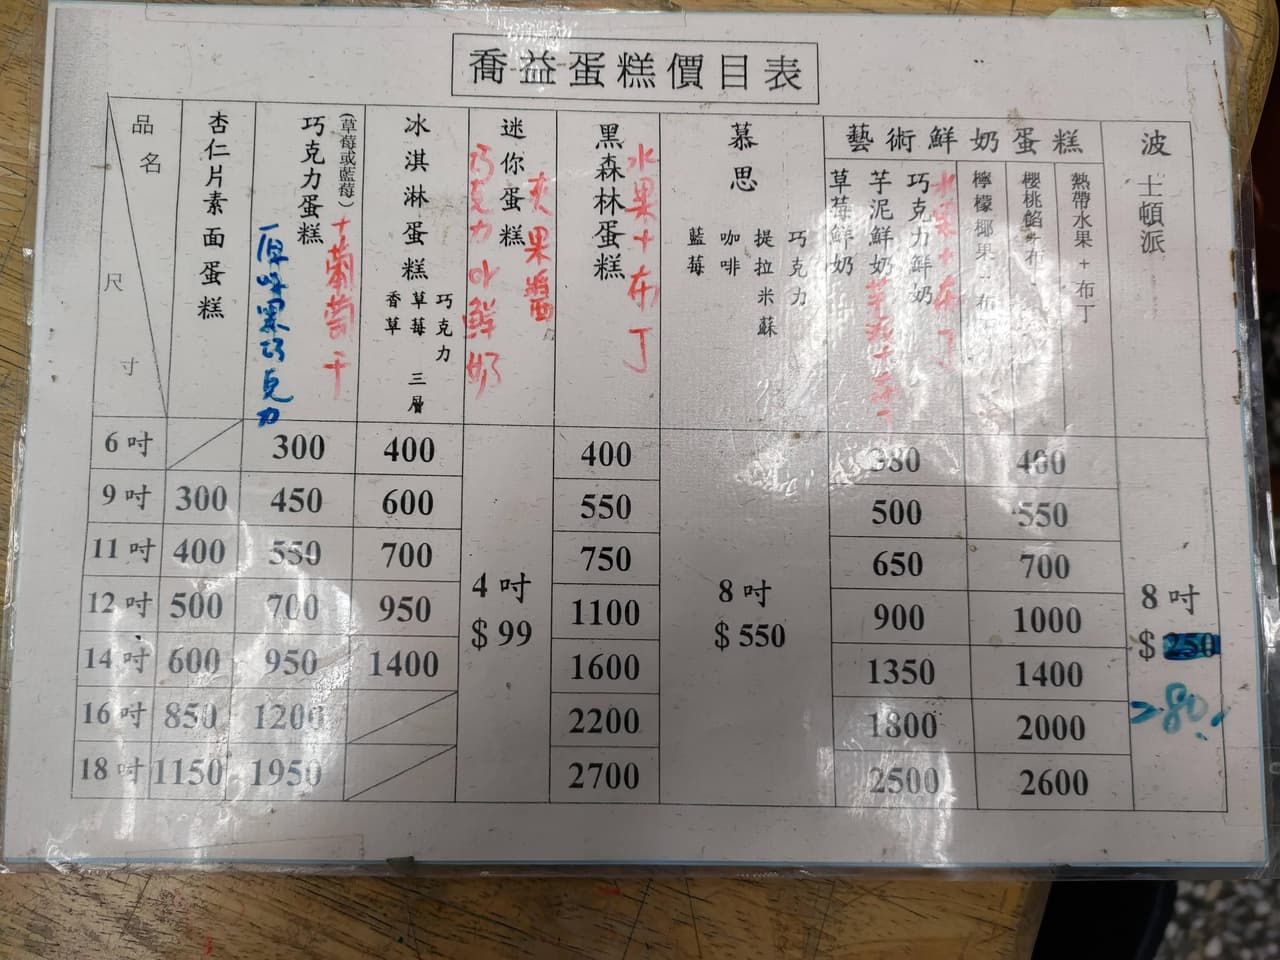 喬益蛋糕價目表
品名
尺寸
杏仁片素面蛋糕
巧克力蛋糕
(草莓或藍莓)
十葡萄干
原味黑巧克力
冰淇淋蛋糕
巧克力
草莓
香草
三層
迷你蛋糕
夾果醬
巧克力or鮮奶
黑森林蛋糕
水果+布丁
慕思
巧克力
提拉米蘇
咖啡
藍莓
藝術鮮奶蛋糕
草莓鮮奶
芋泥鮮奶
巧克力鮮奶
水果+布丁
檸檬椰果+布
櫻桃餡+布
熱帶水果+布丁
波士頓派
6吋 300 400 400 380 400
9吋 300 450 600 550 500 550
11吋 400 550 700 750 650 700
12吋 500 700 950 1100 900 1000
14吋 600 950 1400 1600 1350 1400
16吋 850 1200 2200 1800 2000
18吋 1150 1950 2700 2500 2600
4吋
$99
8吋
$550
8吋
$250
280